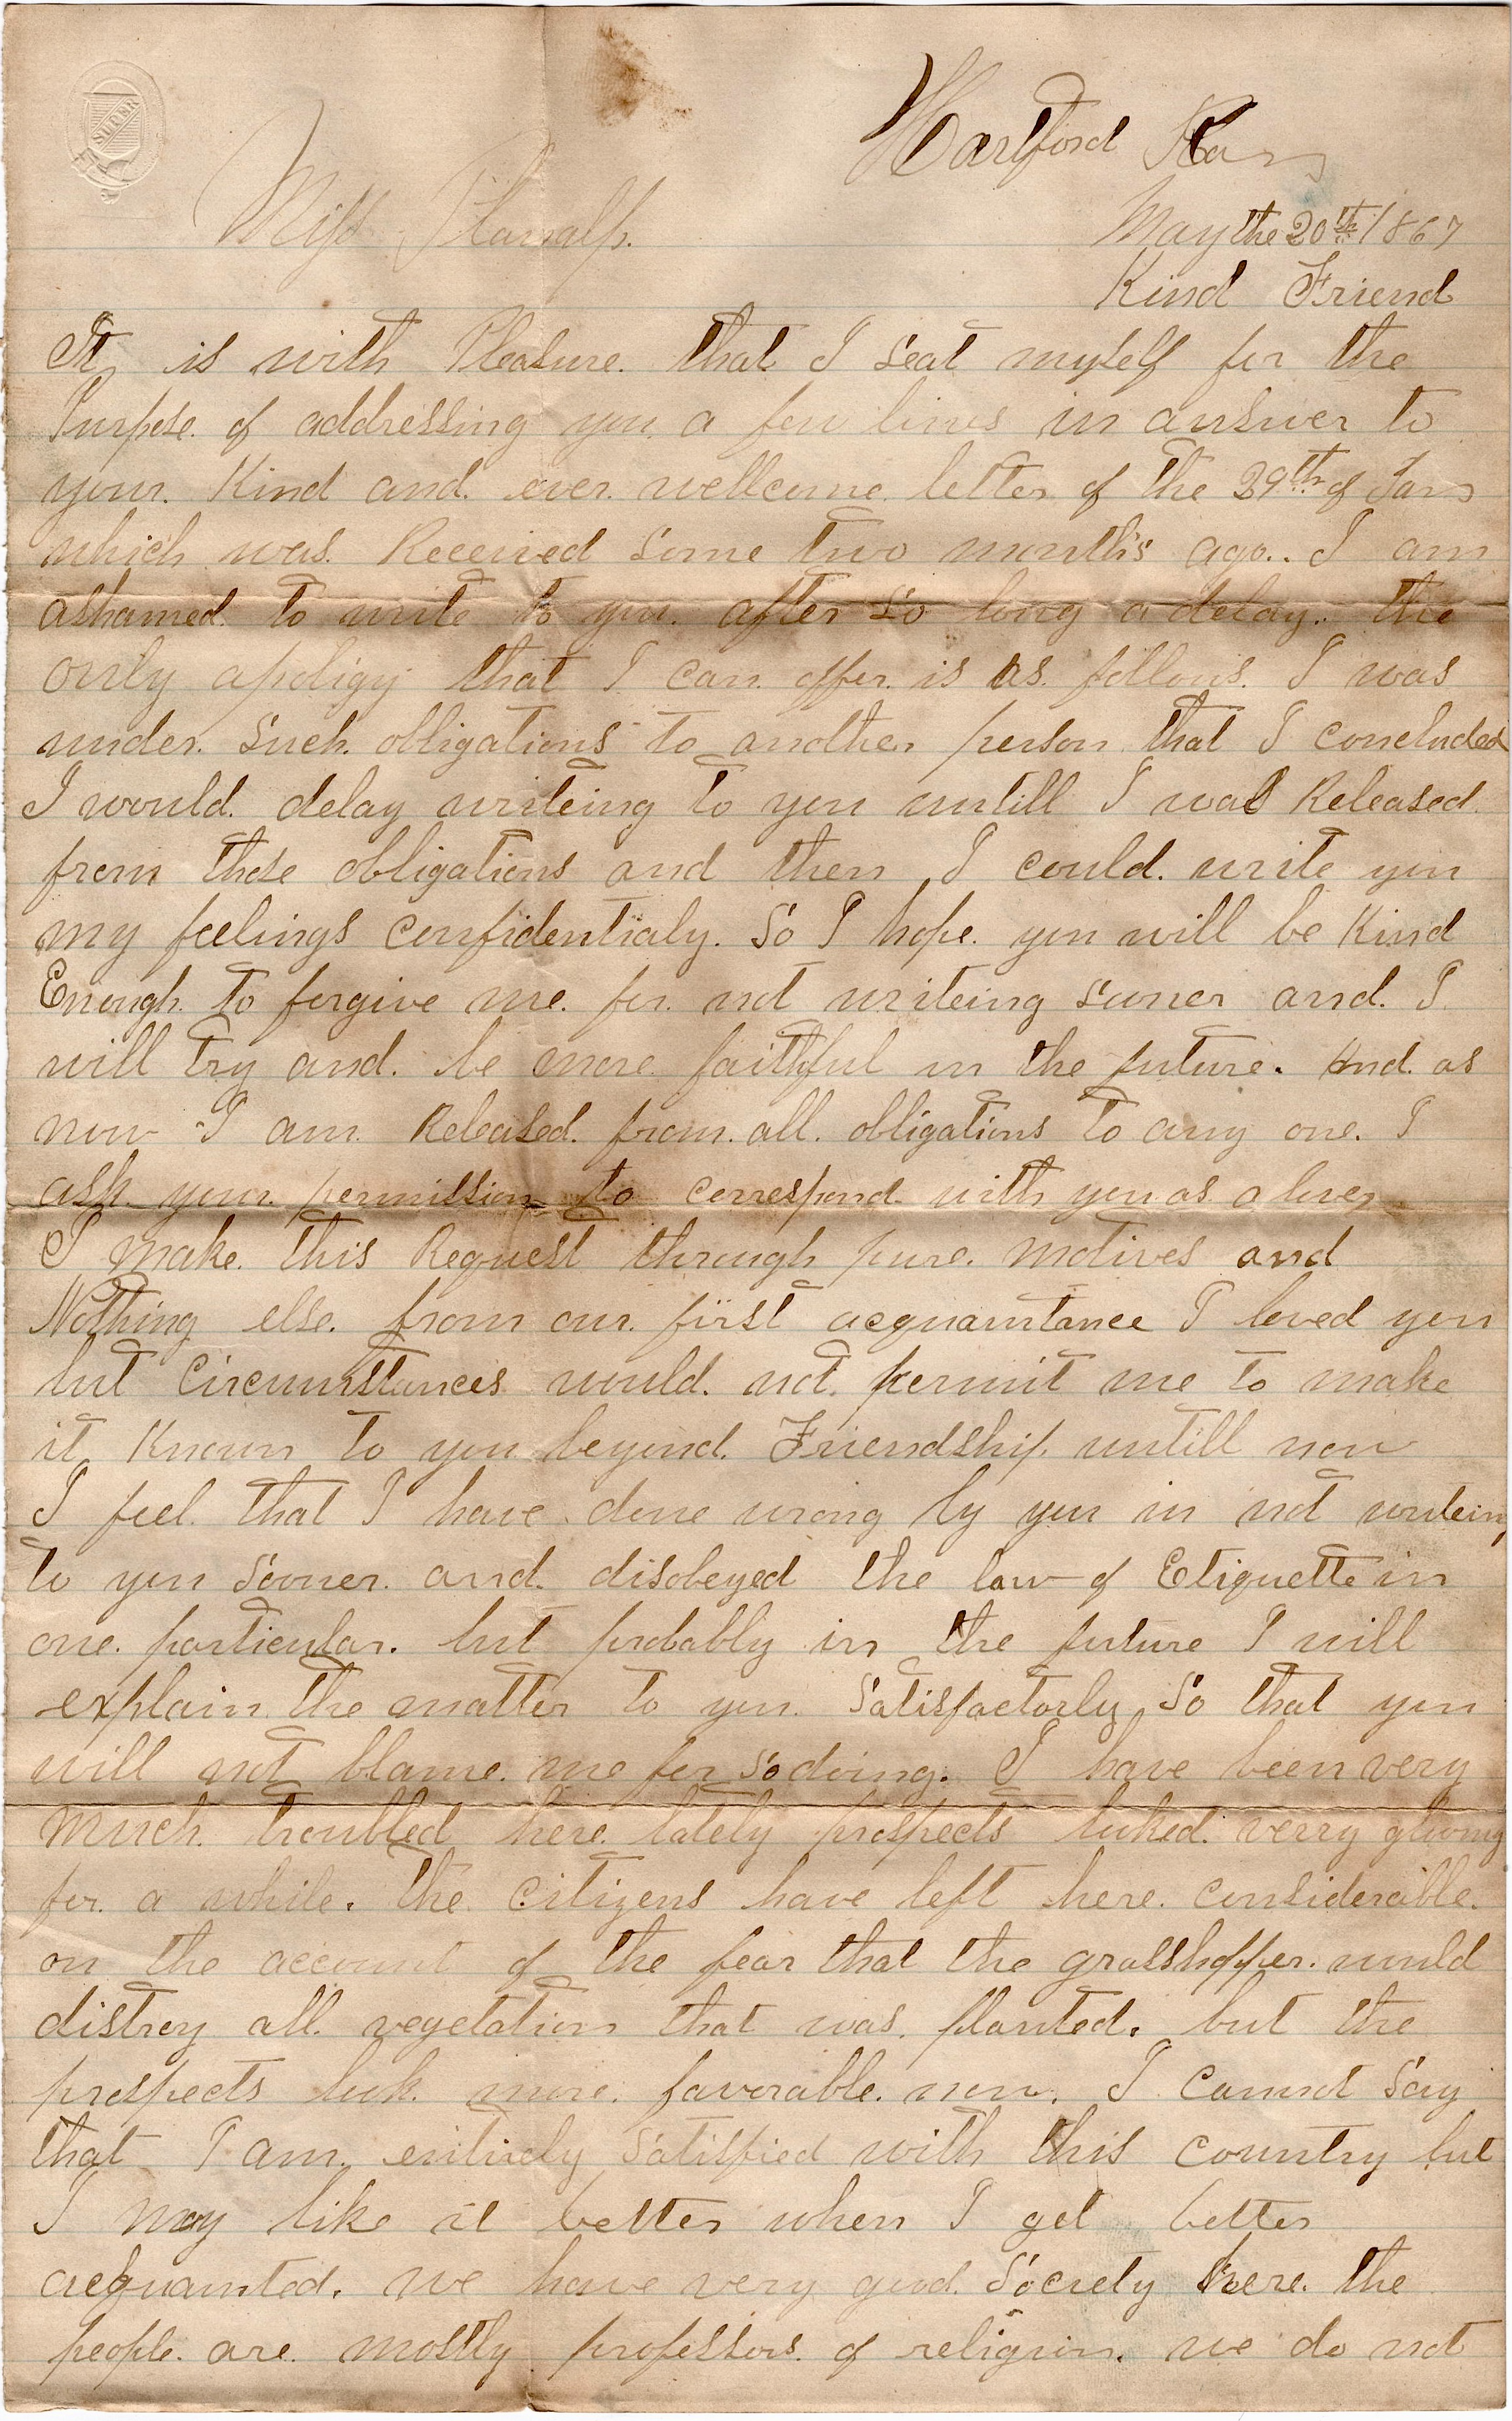 SUPER
Hartford Kans
Miss
May the 20th 1867
Kind Friend
It is with Pleasure. that I seat myself for the
Purpose. of addressing you a few lines in answer to
your. Kind and. ever. wellcome. letter of the 29th of Jan
which was. Received some two months ago.. I am
ashamed. to write to you. after so long a delay. the
only apoligy that I can offer. is as. follows. I was
under. such. obligations to another person that I concluded
I would. delay writeing to you untill I was Released.
from those obligations and then I could. write you
my feelings confidentialy. So I hope. you will be Kind
Enough. to forgive me. for. not writeing sooner and. I
will try and. be more faithful in the future. And. as
now I am. Released. from. all. obligations to any one. I
ask. your. permission to correspond. with you as. a lover
I make. this Request through pure. motives and
Nothing else. from our. first acquaintance I loved you
but Circumstances would. not. permit me to make
it Known to you beyond. Friendship. untill now
I feel. that I have done wrong by you in not writeing
to you sooner. and. disobeyed the law of Etiquette in
one. particular. but probably in the future I will
explain the matter to you. satisfactorly So that you
will not blame. me for so doing. I have been very
much. troubled here. lately prospects looked. verry gloomy
for. a while. the citizens have left here. considerable.
on the account of the fear that the grasshopper. would
distroy all. vegetation that was. planted. but the
prospects look. more. favorable. now. I cannot say
that I am. entirely satisfied with this country but
I may like it better when I get better
acquainted. we have very good. society here. the
people. are. mostly professors. of religion. we do not